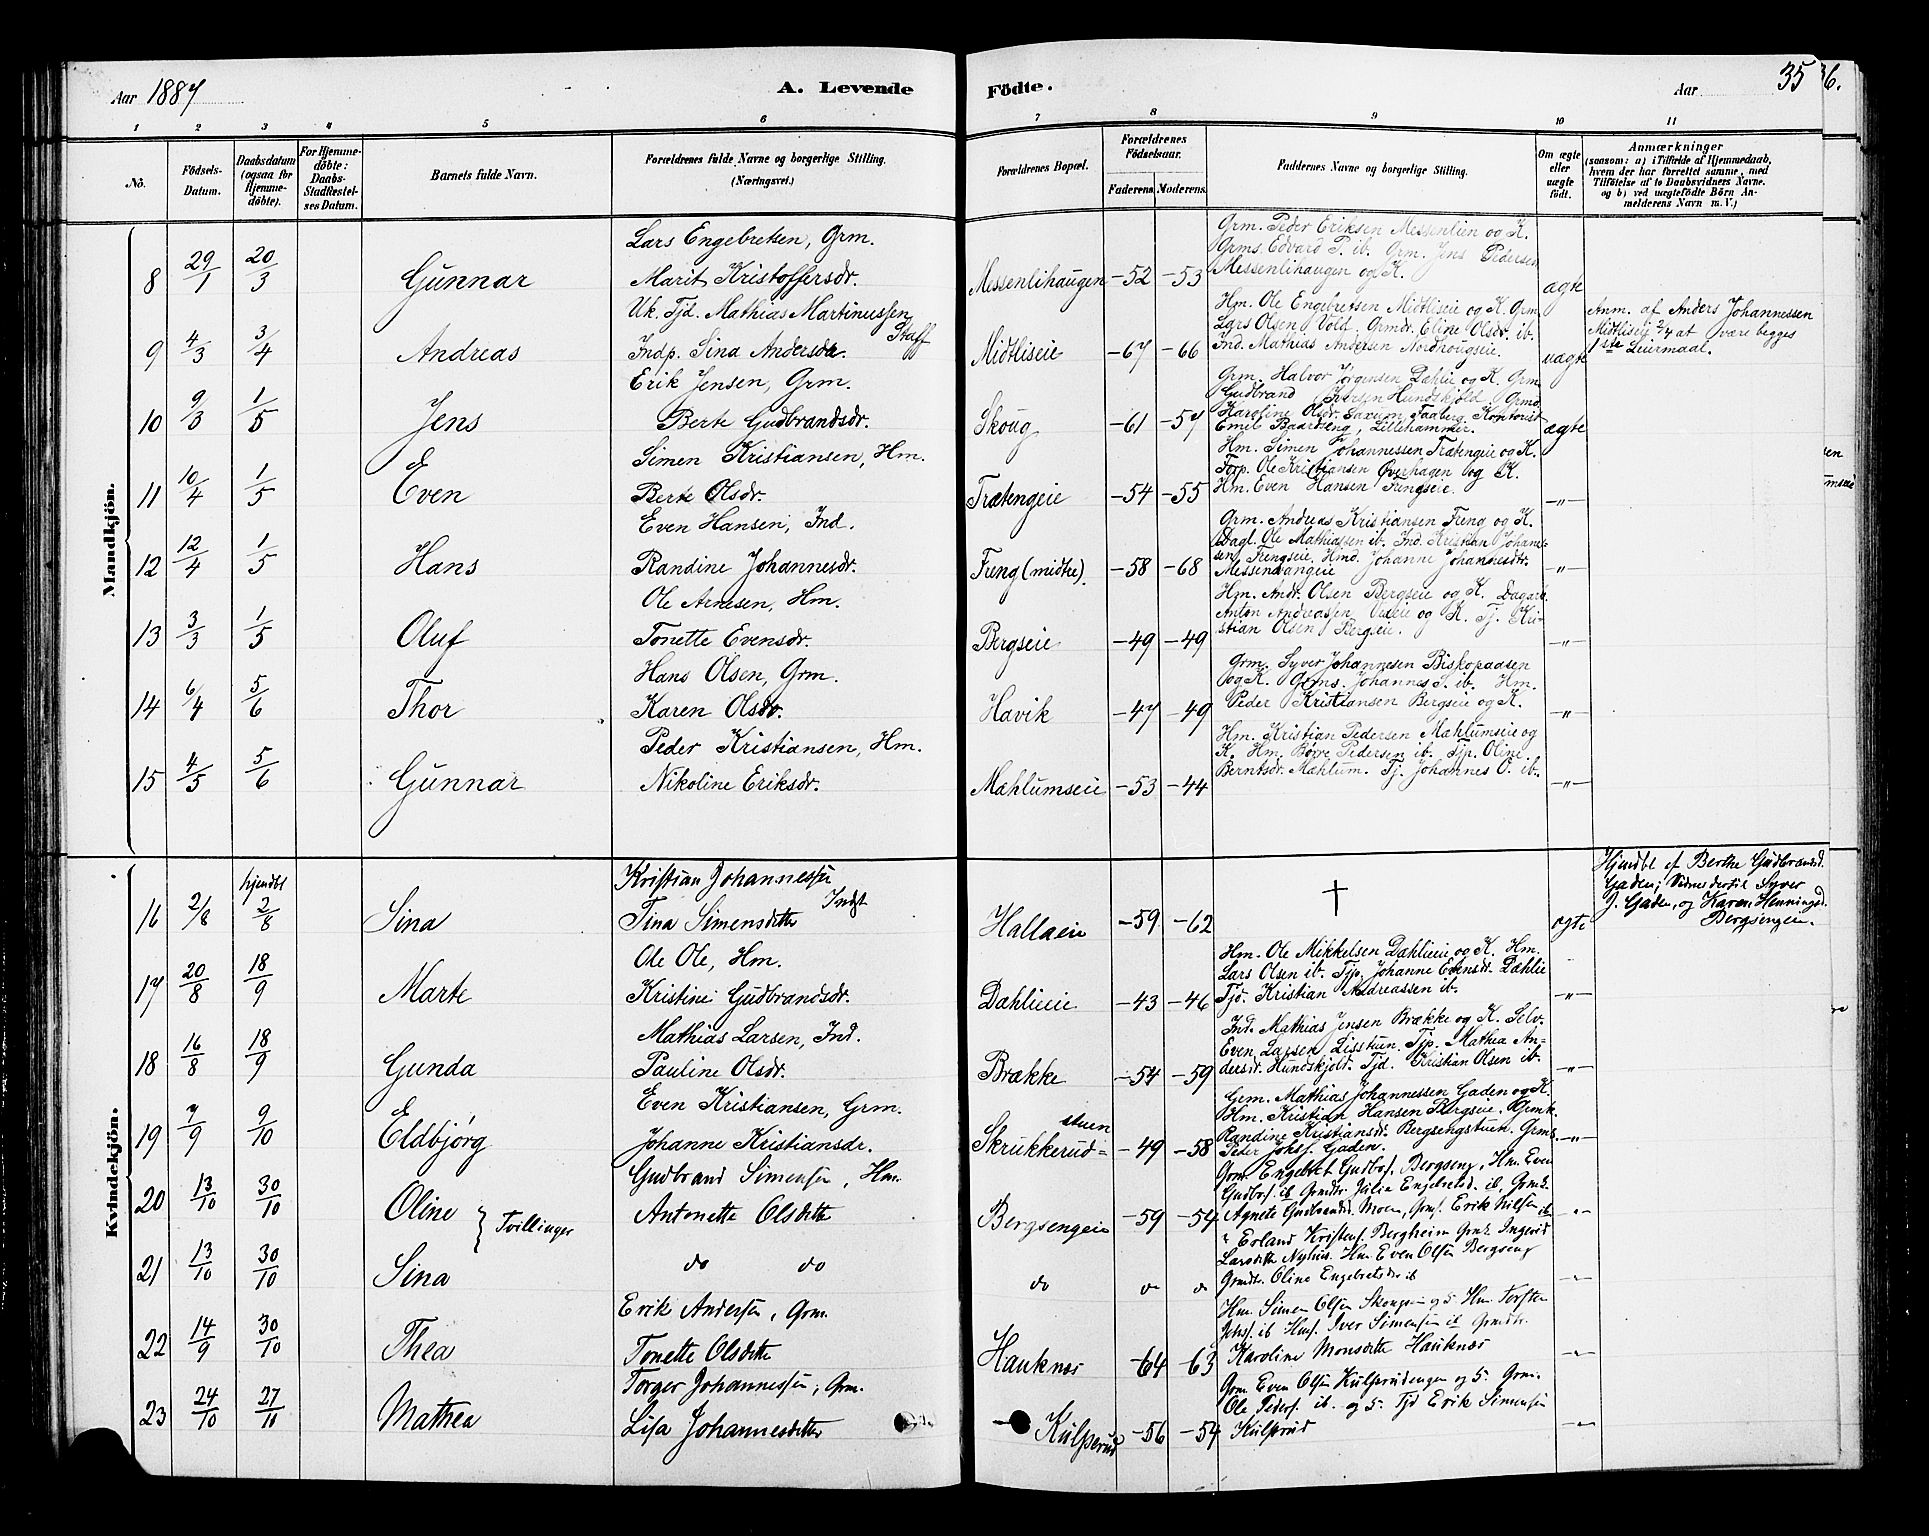 Aar 1887
A. Levende
Födte.
Aar
35
36.
1 2 3 4 5 6 7 8 9 10 11
No.
Födsels-
Datum.
Daabsdatum
(ogsaa for
Hjemme-
döbte).
For Hjemme-
döbte:
Daabs-
Stadfæstel-
ses Datum.
Barnets fulde Navn.
Forældrenes fulde Navne og borgerlige Stilling.
(Næringsvei.)
Forældrenes Bopæl.
Forældrenes
Födselsaar.
Faderens Moderens.
Faddernes Navne og borgerlige Stilling.
Om ægte
eller
uægte
födt.
Anmærkninger
(saasom: a) i Tilfælde af Hjemmedaab,
hvem der har forrettet samme, med
Tilföielse af to Daabsvidners Navne.
og b) ved uægtefödte Börn An-
melderens Navn m. V.)
Mandkjön.
Lars Engebretsen, Grm.
8 29/1 20/3 Gunnar Marit Kristoffersdr. Messenlihaugen -52 -53 ægte
Grm. Peder Eriksen Messenlien og K.
Grms. Edvard P. ib. Grm. Jens Pedersen
Messenlihaugen og K.
Uk. Tjd. Mathias Martinussen
Staff
9 4/3 3/4 Andreas Indp. Sina Andersdr. Midtliseie -67 -66 uægte
Hm. Ole Engebretsen Midtliseie og K. Grm.
Lars Olsen Vold, Grmdr. Eline Olsdr. ib.
Ind. Mathias Andersen Nordhougseie.
Anm. af Anders Johannessen
Midtliseie 2/4 at være begges
1ste Leiermaal.
Erik Jensen, Grm.
10 9/3 1/5 Jens Berte Gudbrandsdr. Skoug -61 -57 ægte
Grm. Halvor Jørgensen Dahlie og K. Grm
Gudbrand Iversen Hundskjold Grmd.
Karoline Olsdr. Saxum, Faaberg, Kontorist
Emil Baardseng, Lillehammer.
Simen Kristiansen, Hm.
11 10/4 1/5 Even Berte Olsdr. Trætengeie -54 -55 -"-
Hm. Simen Johannessen Trætengeie og K.
Torp. Ole Kristiansen Øverhagen og K.
Hm. Even Hansen Frengseie.
Even Hansen, Ind.
12 12/4 1/5 Hans Randine Johannesdr. Freng (midtre). -58 -68 -"-
Grm. Andreas Kristiansen Freng og K.
Dagl. Ole Mathiassen ib. Ind. Kristian Johanes-
sen Frengseie, Hmd. Johanne Johannesdtr.
Messenvangeie
Ole Arnesen, Hm.
13 3/3 1/5 Oluf Tonette Evensdr. Bergseie -49 -49 -"-
Hm. Andr. Olsen Bergseie og K. Dagarb.
Anton Andreassen og K. Tj. Kri-
stian Olsen Bergseie.
Hans Olsen, Grm.
14 6/4 5/6 Thor Karen Olsdr. Havik -47 -49 -"-
Grm. Syver Johannesen Biskopaasen
og K. Grms. Johannes S. ib. Hm.
Peder Kristiansen Bergseie og K.
Peder Kristiansen, Hm.
15 4/5 5/6 Gunnar Nikoline Eriksdr. Mæhlumseie -53 -44 -"-
Hm. Kristian Pedersen Mæhlumseie og
K. Hm. Børre Pedersen ib. Tjp. Oline
Berntsdr. Mæhlum. Tj. Johannes O. ib.
Kvindekjön.
Kristian Johannessen
Indst
hjemdbt
16 2/8 2/8 Sina Tina Simensdatter Hallaeie -59 -62 † ægte
Hjemdbt af Berthe Gudbrandsd.
Gaden; Vidner dertil Syver
J. Gaden, og Karen Henningsd.
Bergsengen.
Ole Ole, Hm.
17 20/8 18/9 Marte Kristine Gudbrandsdr. Dahlieie -43 -46 -"-
Hm. Ole Mikkelsen Dahlieie og K. Hm.
Lars Olsen ib. Tjp. Johanne Evensdr. Dahlie
Tjd. Kristian Andreassen ib.
Mathias Larsen, Ind.
18 16/8 18/9 Gunda Pauline Olsdr. Brække -54 -59 -"-
Ind. Mathias Jensen Brække og K. Selv.
Even Larsen Lisstuen. Tjp. Mathea An-
dersdr. Hundskjold. Tjd. Kristian Olsen ib.
Even Kristiansen, Grm.
19 7/9 9/10 Eldbjörg Johanne Kristiansdr. Skrukkerud-stuen -49 -58 -"-
Grm. Mathias Johannessen Gaden og K.
Hm. Kristian Hansen Bergseie, Grmk.
Randine Kristiansd. Bergsengstuen. Grms.
Peder Johsf. Gaden.
Gudbrand Simensen, Hm.
20 13/10 30/10 Oline } Tvillinger Antonette Olsdatter Bergsengeie -59 -54 -"-
Grm. Engebret Gudbrsf. Bergseng, Hm. Even
Gudbrsf. ib Grmdtr. Julia Engebretsd. ib, Grmk.
Agnete Gudbrandsd. Moen, Grmf. Erik Nilsen ib
21 13/10 30/10 Sina do do do do do -"-
" Erland Kristensf. Bergheim Grmk. Ingerid
Larsdatter Nyhus. Hm Even Olsen Bergseng
Grmdtr. Oline Engebretsdr ib
Erik Andersen, Grm.
22 14/9 30/10 Thea Tonette Olsdatter Hauknæs -64 -63 -"-
Hm. Simen Olsen Skougen og K. Hm. Torsten
Johsf. ib Hmf. Iver Simensen ib Grmdtr.
Karoline Monsdatter Hauknæs
Torger Johannessen, Grm.
23 24/10 27/11 Mathea Lisa Johannesdatter Kulsperud -56 -54 -"-
Grm. Even Olsen Kulsprudengen og K. Grm.
Ole Pedersf. ib. og K. Tjd Erik Simensen
Kulsprud